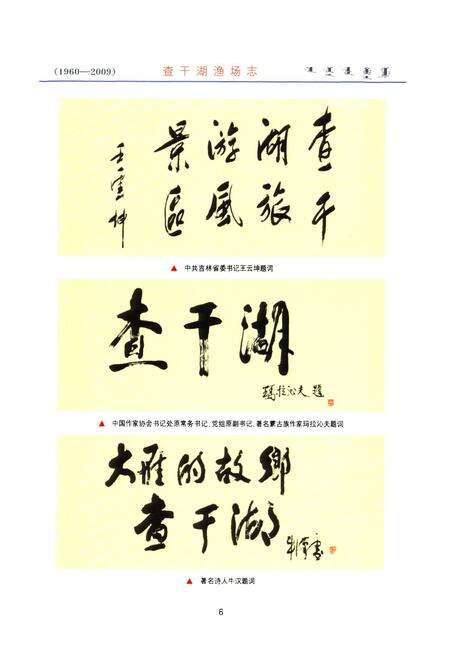 (1960—2009)
查干湖渔场志
查干
湖旅
游風
景區
王雲坤
▲ 中共吉林省委书记王云坤题词
查干湖
瑪拉沁夫 题
▲ 中国作家协会书记处原常务书记、党组原副书记、著名蒙古族作家玛拉沁夫题词
大雁的故鄉
查干湖
▲ 著名诗人牛汉题词
6